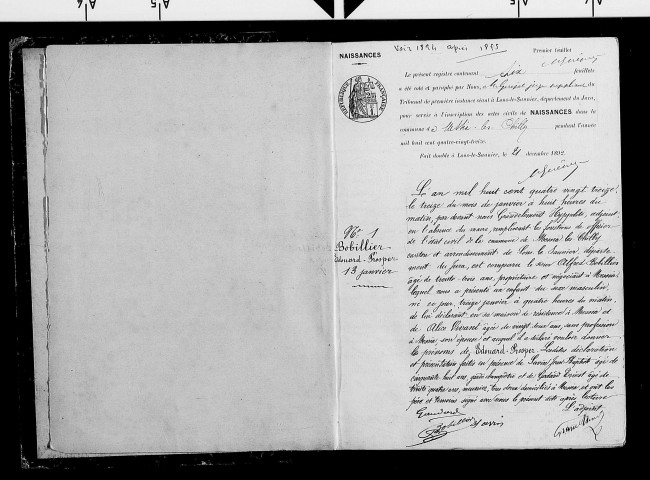 Voir 1894 après 1893
NAISSANCES
Premier feuillet
Le présent registre contenant dix feuillets
a été coté et paraphé par Nous, juge
Tribunal de première instance séant à Lons-le-Saunier, département du Jura,
pour servir à l'inscription des actes civils de NAISSANCES dans la
commune de pendant l'année
mil huit cent quatre-vingt-treize.
Fait double à Lons-le-Saunier, le 21 décembre 1892
RÉPUBLIQUE FRANÇAISE
No 1
Bobillier
Edouard-Prosper
13 janvier
L'an mil huit cent quatre vingt treize,
le treize du mois de janvier à huit heures du
matin, par devant nous Grandclément Hyppolite, adjoint
en l'absence du maire, remplissant les fonctions d'officier
de l'état civil de la commune de Messia les Chilly
canton et arrondissement de Lons le Saunier, départe-
ment du Jura, est comparu le sieur Alfred Bobillier
âgé de trente trois ans, propriétaire et négociant à Messia
lequel nous a présenté un enfant du sexe masculin,
né ce jour, treize janvier à quatre heures du matin,
de lui déclarant en sa maison de résidence à Messia et
de Alice Vivant âgée de vingt deux ans, sans profession
à Messia, son épouse et auquel il a déclaré vouloir donner
les prénoms de Edouard-Prosper. Lesdites déclaration
et présentation faites en présence de Jean-Baptiste âgé de
cinquante huit ans, garde champêtre et de Ernest âgé de
trente quatre ans, menuisier, tous deux domiciliés à Messia, et ont les
père et témoins signé avec nous le présent acte après lecture
L'adjoint,
Bobillier